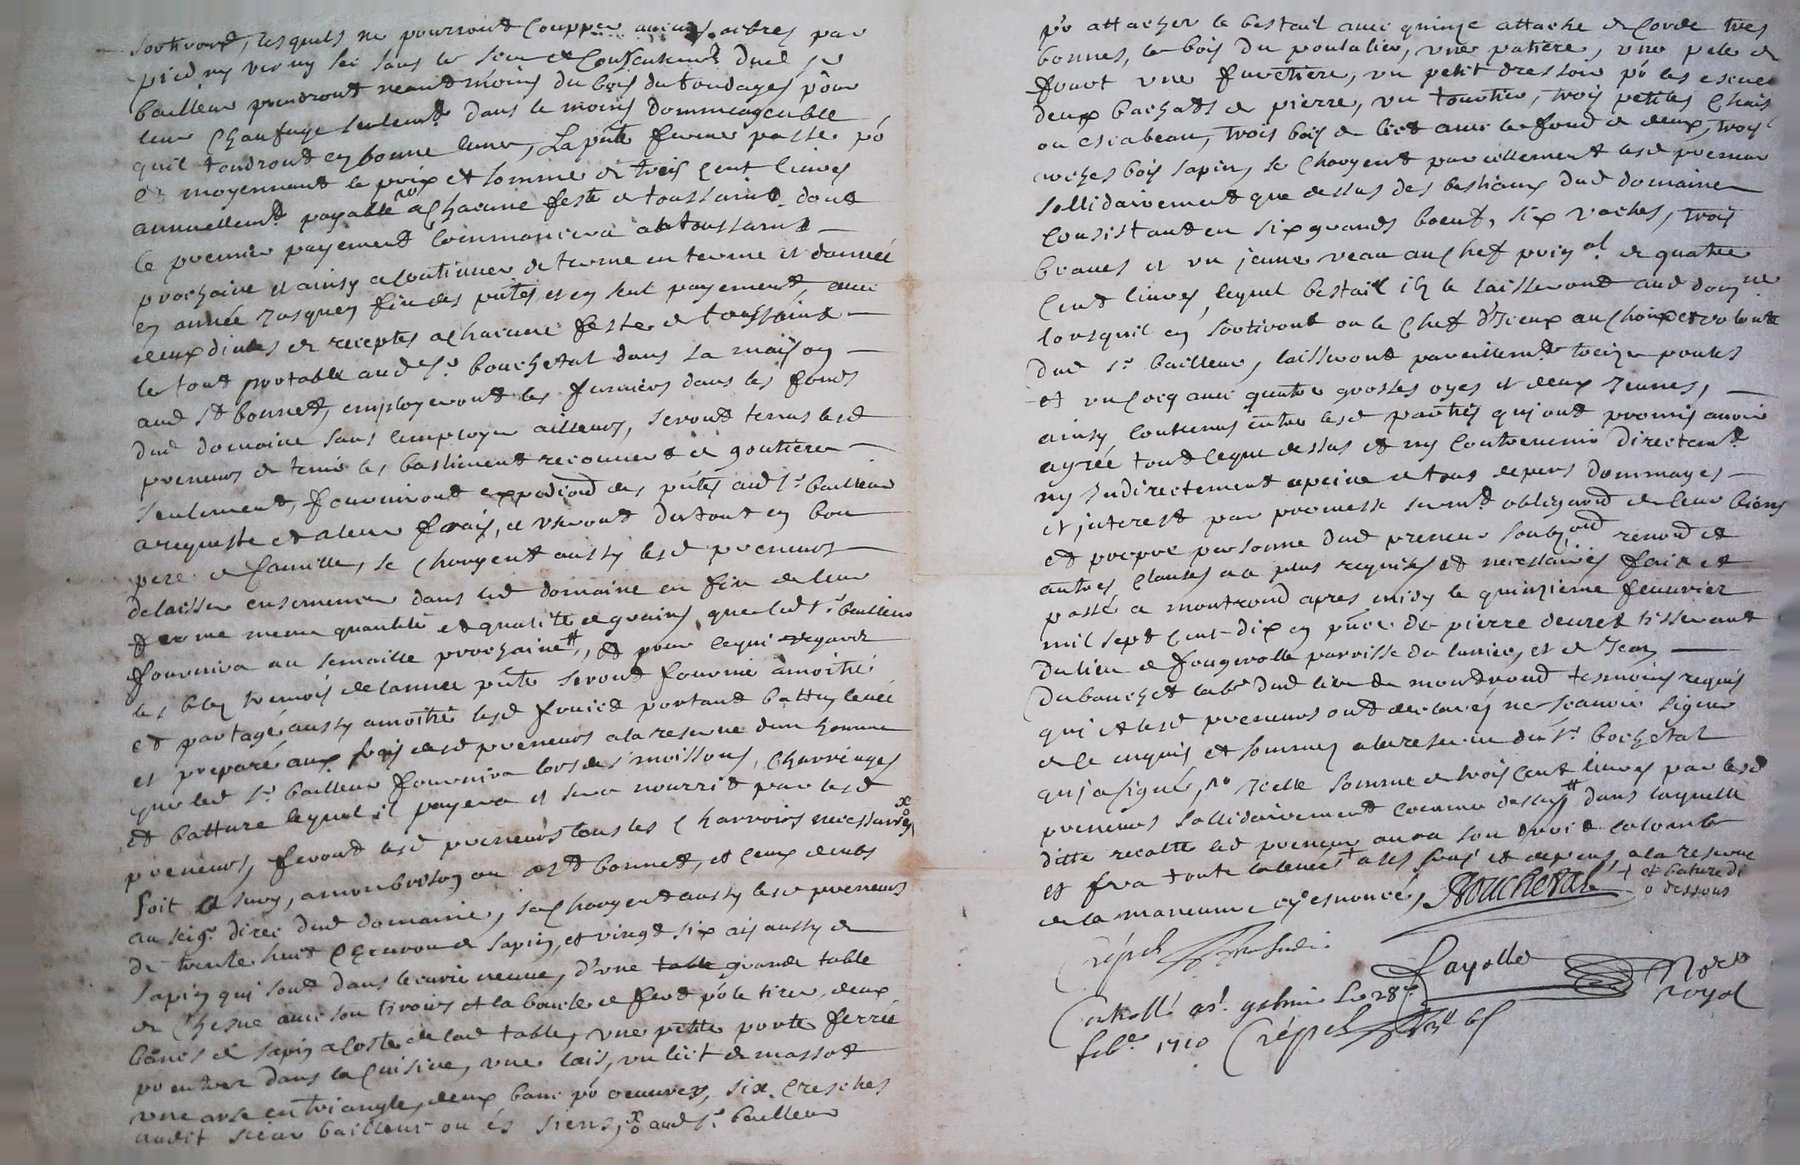 sortiront, lesquels ne pourront coupper aucuns arbres par
pied ny ver ny sec sans le sceu et consentement dud sr
bailleur prendront neantmoins du bois du tondages pour
leur chaufage seulemt dans le moins dommageable
quil tondront en bonne lune, La pnte ferme passée po
et moyennant le prix et somme de trois cent livres
annuellemt payable a chacune feste de toussaint dont
le premier payement commancera a la toussaint
prochaine et ainsy a continuer de terme en terme et dannée
en année jusques fin des pntes, et en seul payement, avec
deux dindes de receptes a chacune feste de toussaint
le tout portable aud sr bouchetal dans sa maison
aud st bonnet, employeront les fumiers dans les fonds
dud domaine sans lemployer ailleurs, seront tenus lesd
preneurs de tenir les bastiments recouvert de goutieres
seulement, fourniront expediond des pntes aud sr bailleur
a requeste et a leur frais, et useront du tout en bon
pere de famille, se chargent aussy lesd preneurs
delaisser ensemencer dans led domaine en fin de leur
ferme meme quantité et qualitte de grains que led sr bailleur
fournira au semaille prochaine, et pour ce qui regarde
les bled tremois de lannée pnte seront fournie a moitié
et partagé aussy a moitié lesd fruict portant battu levée
et preparé aux frais desd preneurs a la reserve dun homme
que led sr bailleur fournira lors des moissons, charriages
et batture lequel il payera et sera nourrit par lesd
preneurs, feront lesd preneurs tous les charrois necessaires
soit a sury, a monbrison ou a st bonnet, et ceux deubs
au seigr direc dud domaine, se chargent aussy lesd preneurs
de trente huit de sapin, et vingt six ais aussy de
sapin qui sont dans lecurie neuve, d'une table grande table
de chesne avec son tiroirs et la boucle de fert po le tirer, deux
bancs de sapin a costé de lad table, une petite porte ferrée
po entrer dans la cuisine, une lais, un lict de massot
une arse en triangle, deux banc po oeuvrer, six cresches
audit sieur bailleur ou és siens, aud sr bailleur
po attacher le bestail avec quinze attache de corde tres
bonnes, le bois du poulalier, une patiere, une pele de
fourt une furetiere, un petit dressoir po les escuel
deux bachats de pierre, un tourtier, trois petites chais
ou escabeau, trois bois de lict avec le fond de deux, trois
bois sapin, se chargent pareillement lesd preneur
sollidairement que dessus des bestiaux dud domaine
consistant en six grands boeufs, six vaches, trois
braves et un jeune veau au chef prinal de quatre
cent livres, lequel bestail ils le laisseront aud domne
lorsquil en sortiront ou le chef d'iceux au choix et volonté
dud sr bailleur, laisseront pareillemt treize poules
et un cocq avec quatre grosses oyes et deux jeunes,
ainsy convenus entre lesd parties qui ont promis avoir
agrée tout ce que dessus et ny contrevenir directemt
ny indirectement a peine de tous depens dommages
et interest par promesse sermt obligaond de leur biens
et propre personne dud preneur soubzond renond et
autres clauses au plus requises et necessaires fait et
passé a montrond apres midy le quinzieme fevvrier
mil sept cent dix en pnce de pierre deuret tisserant
du lieu de fougerolle parroisse du luniec, et de Jean
Dubouchet labr dud lieu de montrond tesmoins requis
qui et lesd preneurs ont declarés ne scavoir signer
de ce enquis et sommés a la reserve du sr bochetal
qui a signé, po icelle somme de trois cent livres par lesd
preneurs sollidairement comme dessus dans laquelle
ditte recolte led preneur aura son droit de colombe
et fera toute a ses frais et depens, a la reserve
de la maneuvre cy enoncée, Boucheral + et bature di
o dessous
Crépet
Fayolle Nore
royal
Controllé a st galmier le 28e
febr 1710 Crépet